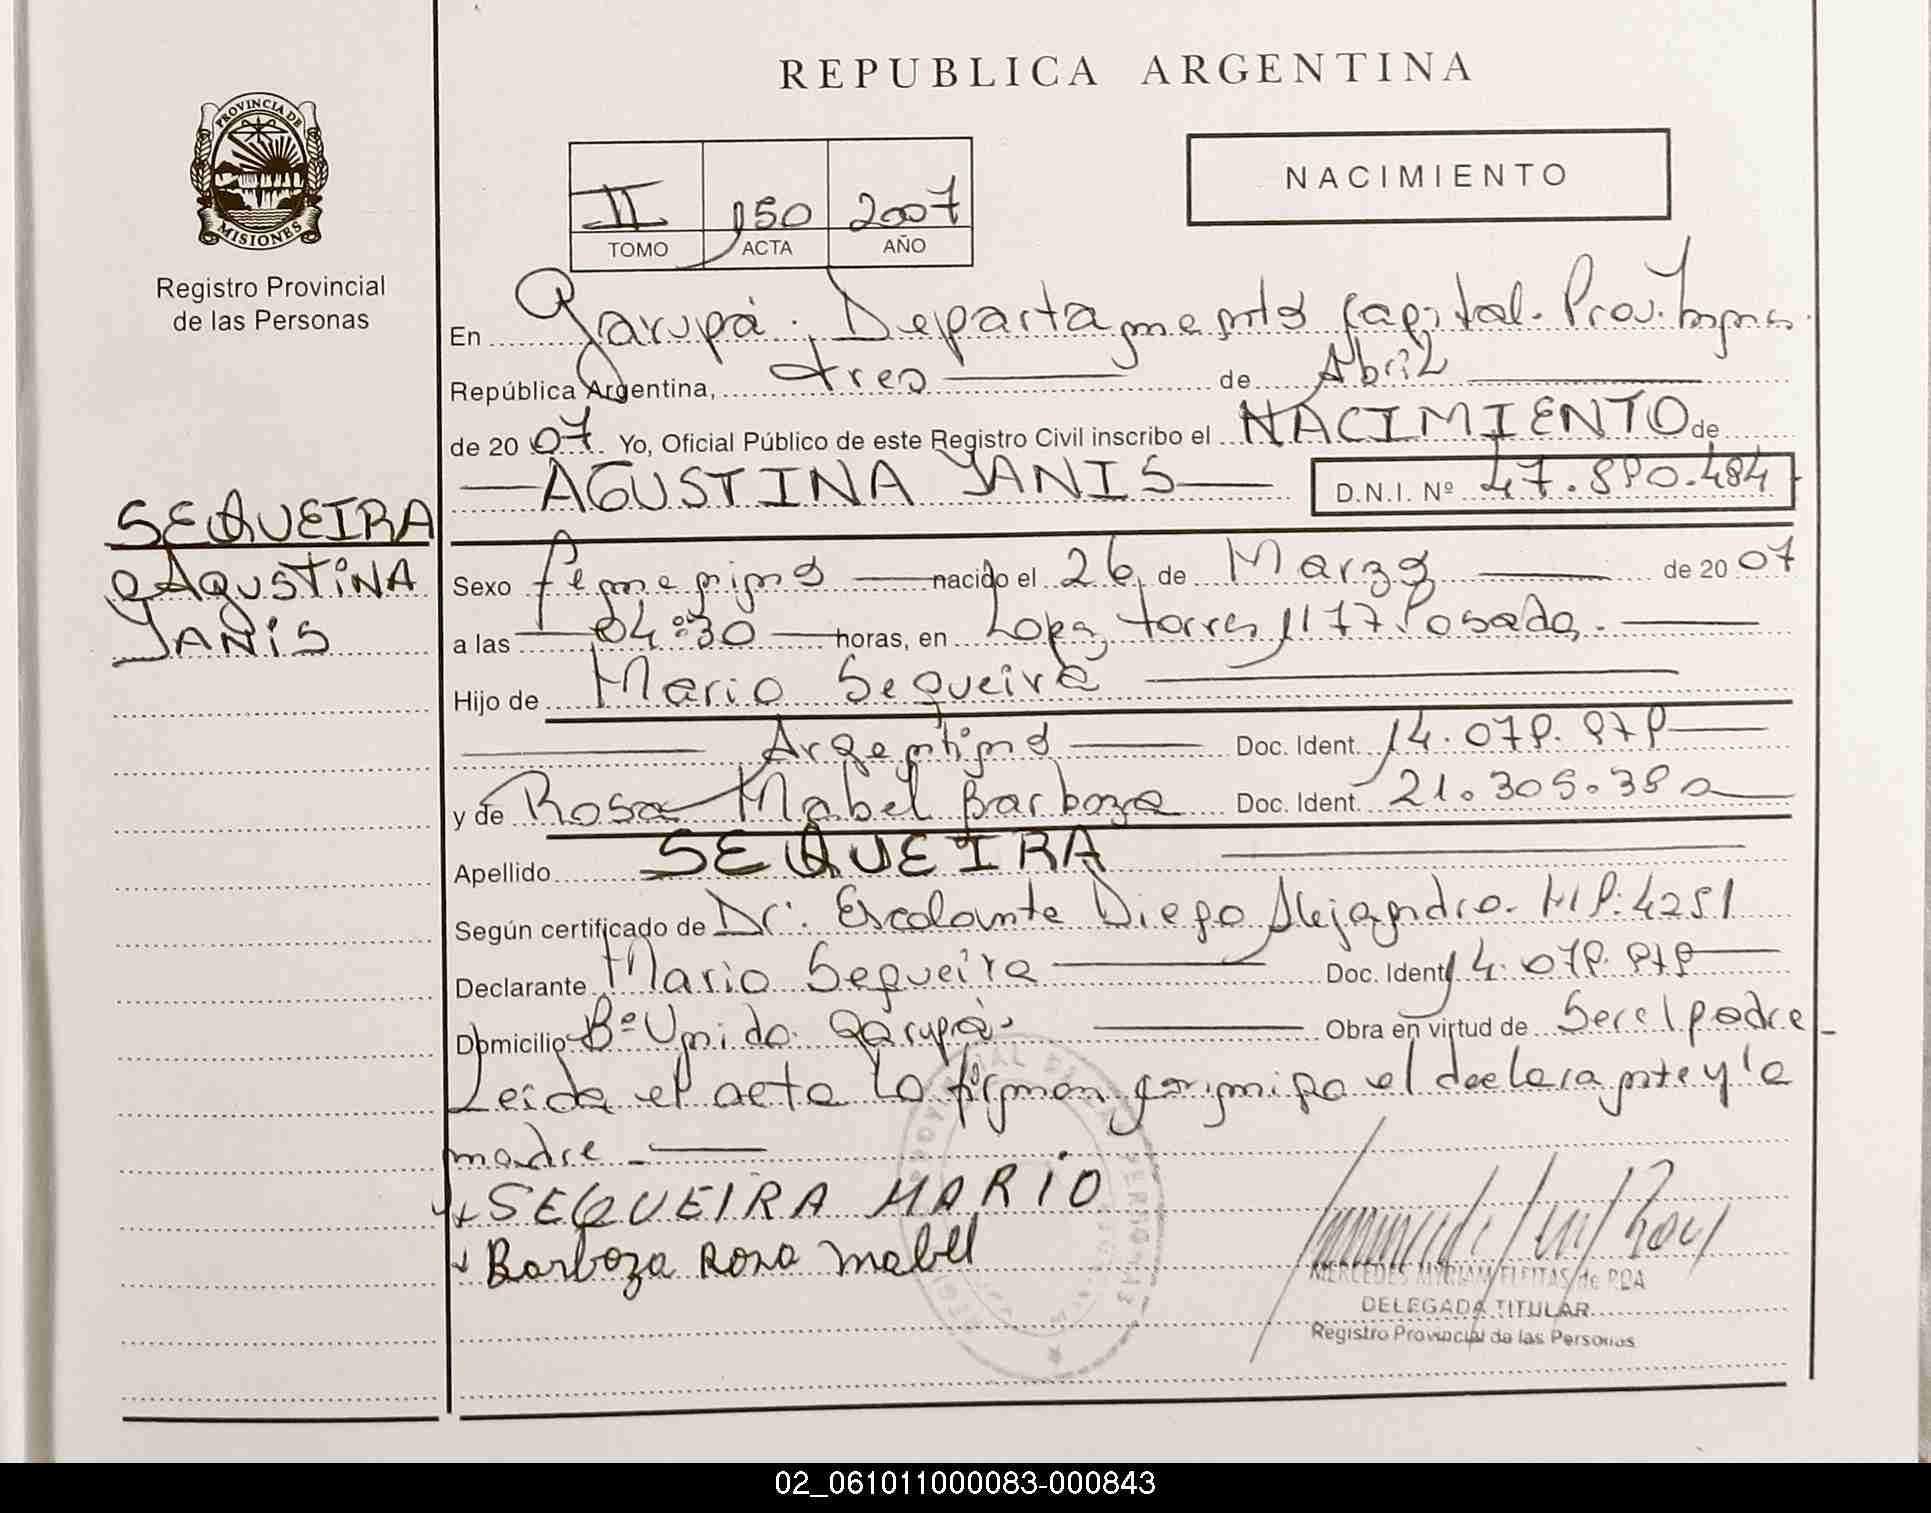 REPUBLICA ARGENTINA
PROVINCIA DE
MISIONES
Registro Provincial
de las Personas
NACIMIENTO
II 150 2007
TOMO ACTA AÑO
En Garupá. Departamento Capital. Prov. Mnes.
República Argentina, tres de Abril
de 2007. Yo, Oficial Público de este Registro Civil inscribo el NACIMIENTO de
AGUSTINA YANIS D.N.I. Nº 47.890.484
SEQUEIRA
AGUSTINA
YANIS
Sexo femenino nacido el 26 de Marzo de 2007
a las 04:30 horas, en Lopez Torres 1177 Posadas.
Hijo de Mario Sequeira
Argentino Doc. Ident. 14.079.979
y de Rosa Mabel Barboza Doc. Ident. 21.305.38
Apellido SEQUEIRA
Según certificado de Dr. Escalante Diego Alejandro. M.P. 4251
Declarante Mario Sequeira Doc. Ident 14.079.979
Domicilio Bº Unido. Garupá. Obra en virtud de Ser el padre
Leida el acta la firman conmigo el declarante y la
madre
SEQUEIRA MARIO
Barboza Rosa Mabel
MERCEDES MYRIAM FLEITAS de ROA
DELEGADA TITULAR
Registro Provincial de las Personas
02_061011000083-000843